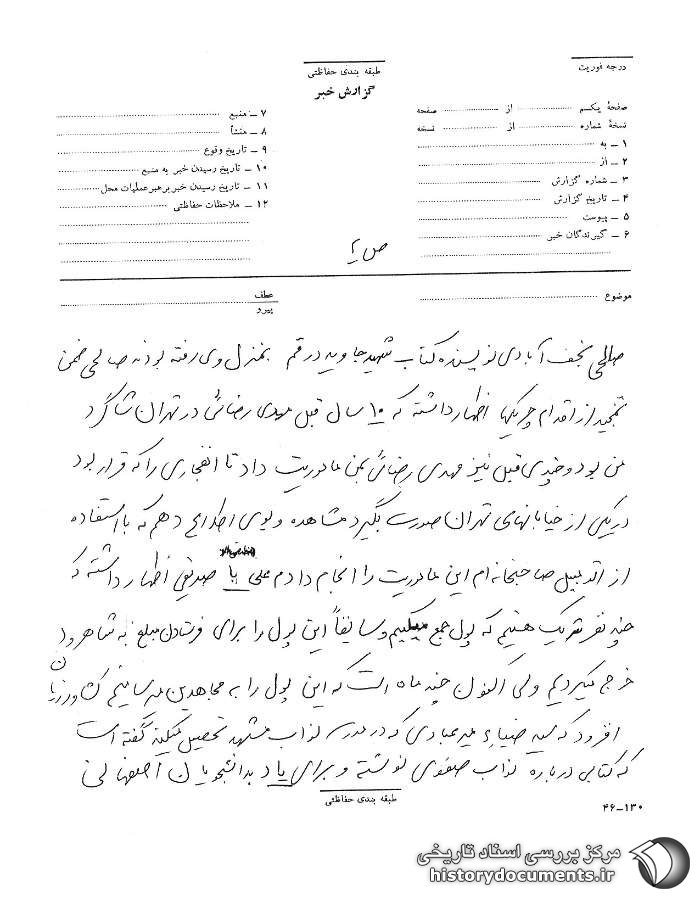 درجه فوریت
طبقه بندی حفاظتی
گزارش خبر
صفحهٔ یکم ........ از ........ صفحه
نسخهٔ شماره ........ از ........ نسخه
۱ – به
۲ – از
۳ – شماره گزارش
۴ – تاریخ گزارش
۵ – پیوست
۶ – گیرندگان خبر
۷ – منبع
۸ – منشأ
۹ – تاریخ وقوع
۱۰ – تاریخ رسیدن خبر به منبع
۱۱ – تاریخ رسیدن خبر برهبر عملیات محل
۱۲ – ملاحظات حفاظتی
موضوع
عطف
پیرو
صالحی نجف آبادی نویسنده کتاب شهید جاوید در قم بمنزل وی رفته بودند صالحی ضمن
تمجید از اقدام چریکها اظهار داشته که ۱۰ سال قبل مهدی رضائی در تهران شاگرد
من بود و چندی قبل نیز مهدی رضائی بمن ماموریت داد تا انفجاری را که قرار بود
در یکی از خیابانهای تهران صورت بگیرد مشاهده و بوی اطلاع دهم که با استفاده
از اتومبیل صاحبخانه ام این ماموریت را انجام دادم علی بابا صدیقی اظهار داشته که
چند نفر شریک هستیم که پول جمع میکنیم و سابقاً این پول را برای فرستادن مبلغ به شاهرود
خرج میکردیم ولی اکنون چند ماه است که این پول را به مجاهدین میرسانیم کشاورزیان
افزود که سید ضیاء میرعبادی که در مدرسه نواب مشهد تحصیل میکند گفته است
که کتابی درباره نواب صفوی نوشته و برای یاد به دانشجویان اصفهانی
طبقه بندی حفاظتی
۴۶–۱۳۰
مرکز بررسی اسناد تاریخی
historydocuments.ir